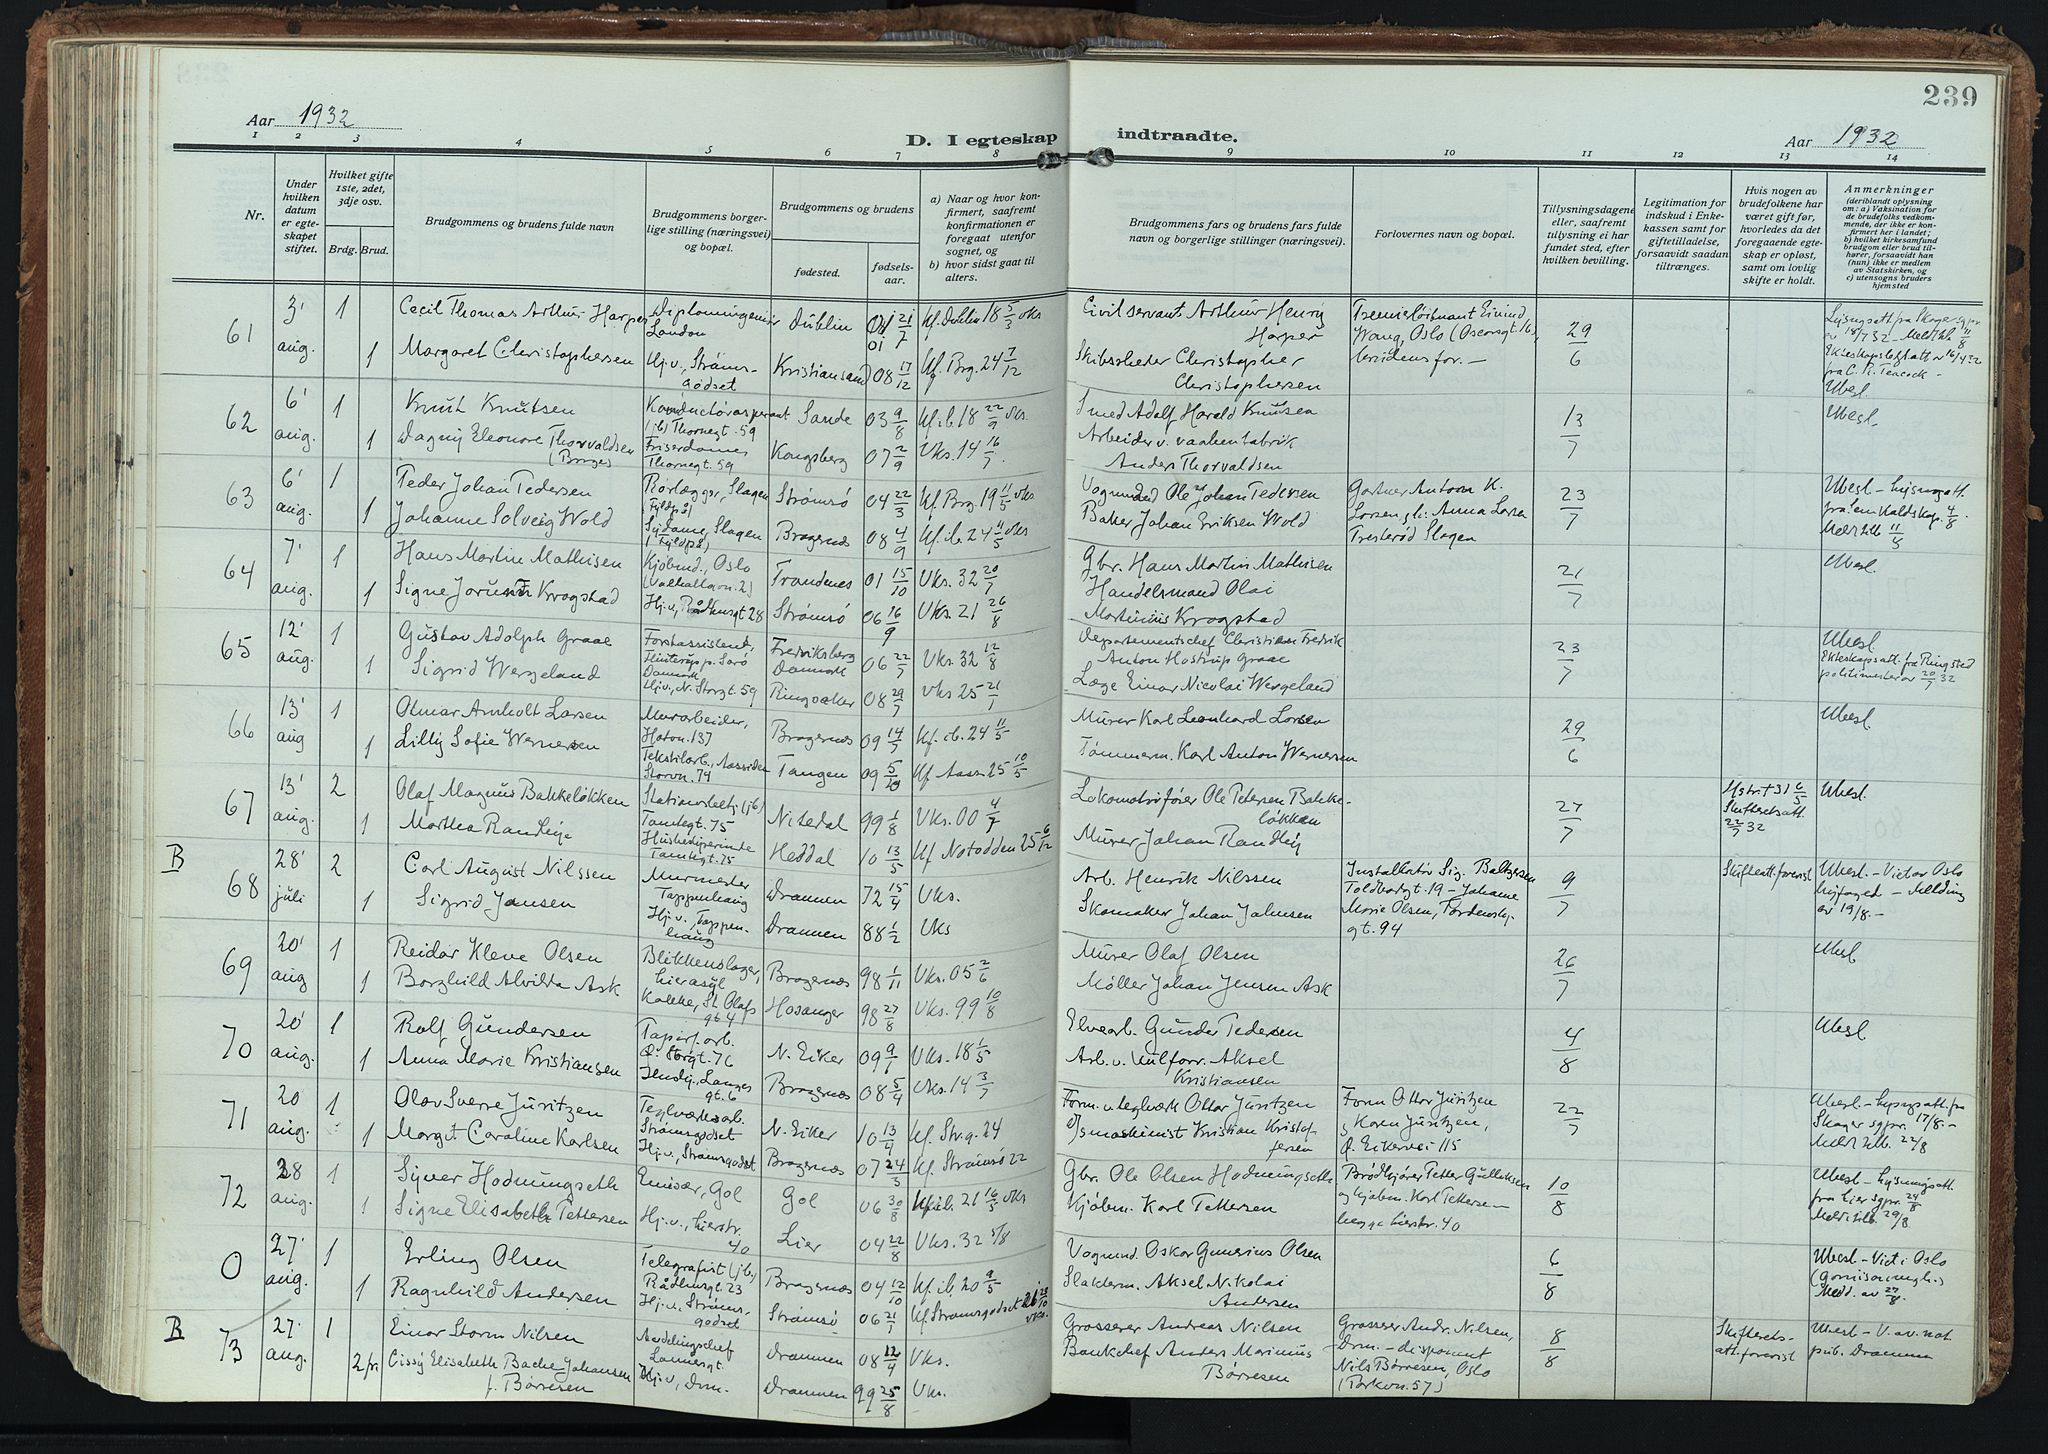 239
Aar 1932
D. I egteskap indtraadte.
Aar 1932
1 2 3 4 5 6 7 8 9 10 11 12 13 14
Nr.
Under hvilken datum er egteskapet stiftet.
Hvilket gifte 1ste, 2det, 3dje osv.
Brdg. Brud.
Brudgommens og brudens fulde navn
Brudgommens borgerlige stilling (næringsvei) og bopæl.
Brudgommens og brudens
fødested.
fødselsaar.
a) Naar og hvor konfirmert, saafremt konfirmationen er foregaat utenfor sognet, og
b) hvor sidst gaat til alters.
Brudgommens fars og brudens fars fulde navn og borgerlige stillinger (næringsvei).
Forlovernes navn og bopæl.
Tillysningsdagene eller, saafremt tillysning ei har fundet sted, efter hvilken bevilling.
Legitimation for indskud i Enkekassen samt for giftetilladelse, forsaavidt saadan tiltrænges.
Hvis nogen av brudefolkene har været gift før, hvorledes da det foregaaende egteskap er opløst, samt om lovlig skifte er holdt.
Anmerkninger (deriblandt oplysning om: a) Vaksination for de brudefolks vedkommende, der ikke er konfirmert her i landet; b) hvilket kirkesamfund brudgom eller brud tilhører, forsaavidt han (hun) ikke er medlem av Statskirken, og c) utensogns bruders hjemsted
61 3' aug. 1 Cecil Thomas Arthur Harper Diplomingeniør London Dublin 01 21/7 Kf. Dublin 18 5/3 vks Civil servant Arthur Henry Harper Premierløitnant Eivind Wang, Oslo (Oscarsgt. 16), 29/6
1 Margaret Christophersen Hj.v., Strømsgodset Kristiansand 08 17/12 Kf. Brg. 24 7/12 Skibsreder Christopher Christophersen brudens far. Ubesl.
62 6' aug. 1 Knut Knutsen Konduktøraspirant (jb) Thornegt. 59 Sande 03 9/8 Kf. ib. 18 22/9 vks. Smed Adolf Harald Knutsen 13/7 Ubesl.
1 Dagny Eleonore Thorvaldsen (Borges) Friserdame Thornegt. 59 Kongsberg 07 2/9 Vks. 14 16/7 Arbeider v. vaabenfabrik Anders Thorvaldsen
63 6' aug. 1 Peder Johan Pedersen Rørlægger, Slagen Strømsø 04 22/3 Kf. Brg. 19 11/5 vks Vognmand Ole Johan Pedersen Gartner Anton K. Larsen, Anna Larsen Presterød Slagen 23/7 Ubesl. - lysngsatt.
1 Johanne Solveig Wold Sydame, Slagen Bragernæs 08 4/9 Kf. ib. 24 11/5 vks Baker Johan Eriksen Wold
64 7' aug. 1 Hans Martin Mathisen Kjøbmd., Oslo (Valhallavn. 2) Trondenes 01 15/10 Vks. 32 20/7 Gbr. Hans Martin Mathisen 21/7 Ubesl.
1 Signe Jorunn Krogstad Hj.v., Rådhusgt 28 Strømsø 06 16/9 Vks. 21 26/8 Handelsmand Olai Martinius Krogstad
65 12' aug. 1 Gustav Adolph Graae Forstassistent, Danmark Fredriksberg Danmark 06 22/7 Vks. 32 12/8 Departementschef Christian Fredrik Anton Hastrup Graae 23/7 Ubesl. Ekteskapsatt. fra Ringsted politimester av 20/7 32
1 Sigrid Wergeland Hj.v., N. Storgt. 59 Ringsaker 08 29/7 vks 25 21/7 Læge Einar Nicolai Wergeland
66 13' aug 1 Olmar Arnholt Larsen Murarbeider, Haton. 137 Bragernæs 09 14/7 Kf. ib. 24 11/5 Murer Karl Leonhard Larsen 29/6 Ubesl.
1 Lilly Sofie Wernersen Tekstilarb., Aassiden Storvn. 74 Tangen 09 5/20 Kf Aass. 25 10/5 Tømmerm. Karl Anton Wernersen
67 13' aug. 2 Olaf Magnus Bakkeløkken Stationsbetj. (jb) Tamtegt. 75 Nitedal 99 1/8 Vks. 00 4/7 Lokomotivfører Ole Petersen Bakkeløkken 27/7 Skifteretsatt. 22/7 32 Ubesl.
1 Martha Randløje Husbestyrerinde Tamtegt. 75 Heddal 10 13/5 Kf Notodden 25 6/12 Murer Johan Randløj
B 68 28' juli 2 Carl August Nilssen Murmester Tappenhaug Drammen 72 15/4 Vks. Arb. Henrik Nilssen Installatør Sig. Baltzersen Toldbodgt. 19 - Johanne Marie Olsen, Tordenskj.gt. 94 9/7 Skifteatt. forevist Ubesl. - Viet av Oslo byfoged - Melding av 19/8. -
1 Sigrid Jansen Hj.v., Tappenhaug Drammen 88 1/2 Vks Skomaker Johan Johnsen
69 20' aug 1 Reidar Kleve Olsen Blikkenslager, Bragernæs 98 1/11 Vks. 05 2/6 Murer Olaf Olsen 26/7 Ubesl
1 Borghild Alvilda Ask Kokke, St Olafs gt 41 Hosanger 98 27/8 Vks. 99 10/8 Møller Johan Jensen Ask
70 20' aug. 1 Rolf Gundersen Papirf. arb. Ø. Storgt. 76 N. Eiker 09 9/7 Vks. 18 1/5 Elvearb. Gunder Pedersen 4/8 Ubesl
1 Anna Marie Kristiansen Langes gt. 6 Bragernæs 08 5/4 Vks. 14 3/7 Arb. v. kulforr. Aksel Kristiansen
71 20 aug. 1 Olav Sverre Juritzen Teglværksarb. Strømsgodset N. Eiker 10 13/4 Kf. Str.g. 24 Form. v. teglværk Ottar Juritzen Form Ottar Juritzen, Karen Juritzen, Ø. Eikervei 115 22/7 Ubesl - lysngsatt. fra Skoger sgpr. 17/8. -
1 Margit Caroline Karlsen Hj.v., Strømsgodset Bragernæs 07 24/3 Kf. Strømsø 22 maskinist Kristian Kristoffersen
72 28 aug. 1 Syver Hodnungseth Emisær, Gol Gol 06 30/8 Kf. ib. 21 16/5 vks Gbr. Ole Olsen Hodnungseth Brødkjører Petter Gulliksen og kjøbm. Karl Pettersen - begge Lierstr. 40 10/8 Ubesl - lysningsatt. fra Lier sgpr. 24/8
1 Signe Elisabeth Pettersen Hj.v., Lierstr. 40 Lier 04 22/8 Vks. 32 5/8 Kjøbm. Karl Pettersen
0 27' aug. 1 Erling Olsen Telegrafist (jb.) Rådhusgt. 23 Bragernæs 04 12/10 Kf. ib. 20 9/5 Vognmd. Oskar Gunerius Olsen 6/8 Ubesl - Viet i Oslo (garnisonsmgh.) Medd. av 27/8.
1 Ragnhild Andersen Hj.v., Strømsgodset Strømsø 06 21/7 Kf. Strømsgodset 21 28/10 vks. Slakterm. Aksel Nikolai Andersen
B 73 27' aug. 1 Einar Storm Nilsen Avdelingschef Drammen 08 12/4 Vks. Grosserer Andreas Nilsen Grosserer Andr. Nilsen, Drm. - disponent Nils Børresen, Oslo (Parkvn. 57) 8/8 Skifteretsatt. forevist Ubesl - V. av not. pub. Drammen
2 fr. Cissy Elisabeth Bache Johansen f. Børresen Hj.v., Drm. Drammen 99 25/8 Vks. Bankchef Anders Marinius Børresen